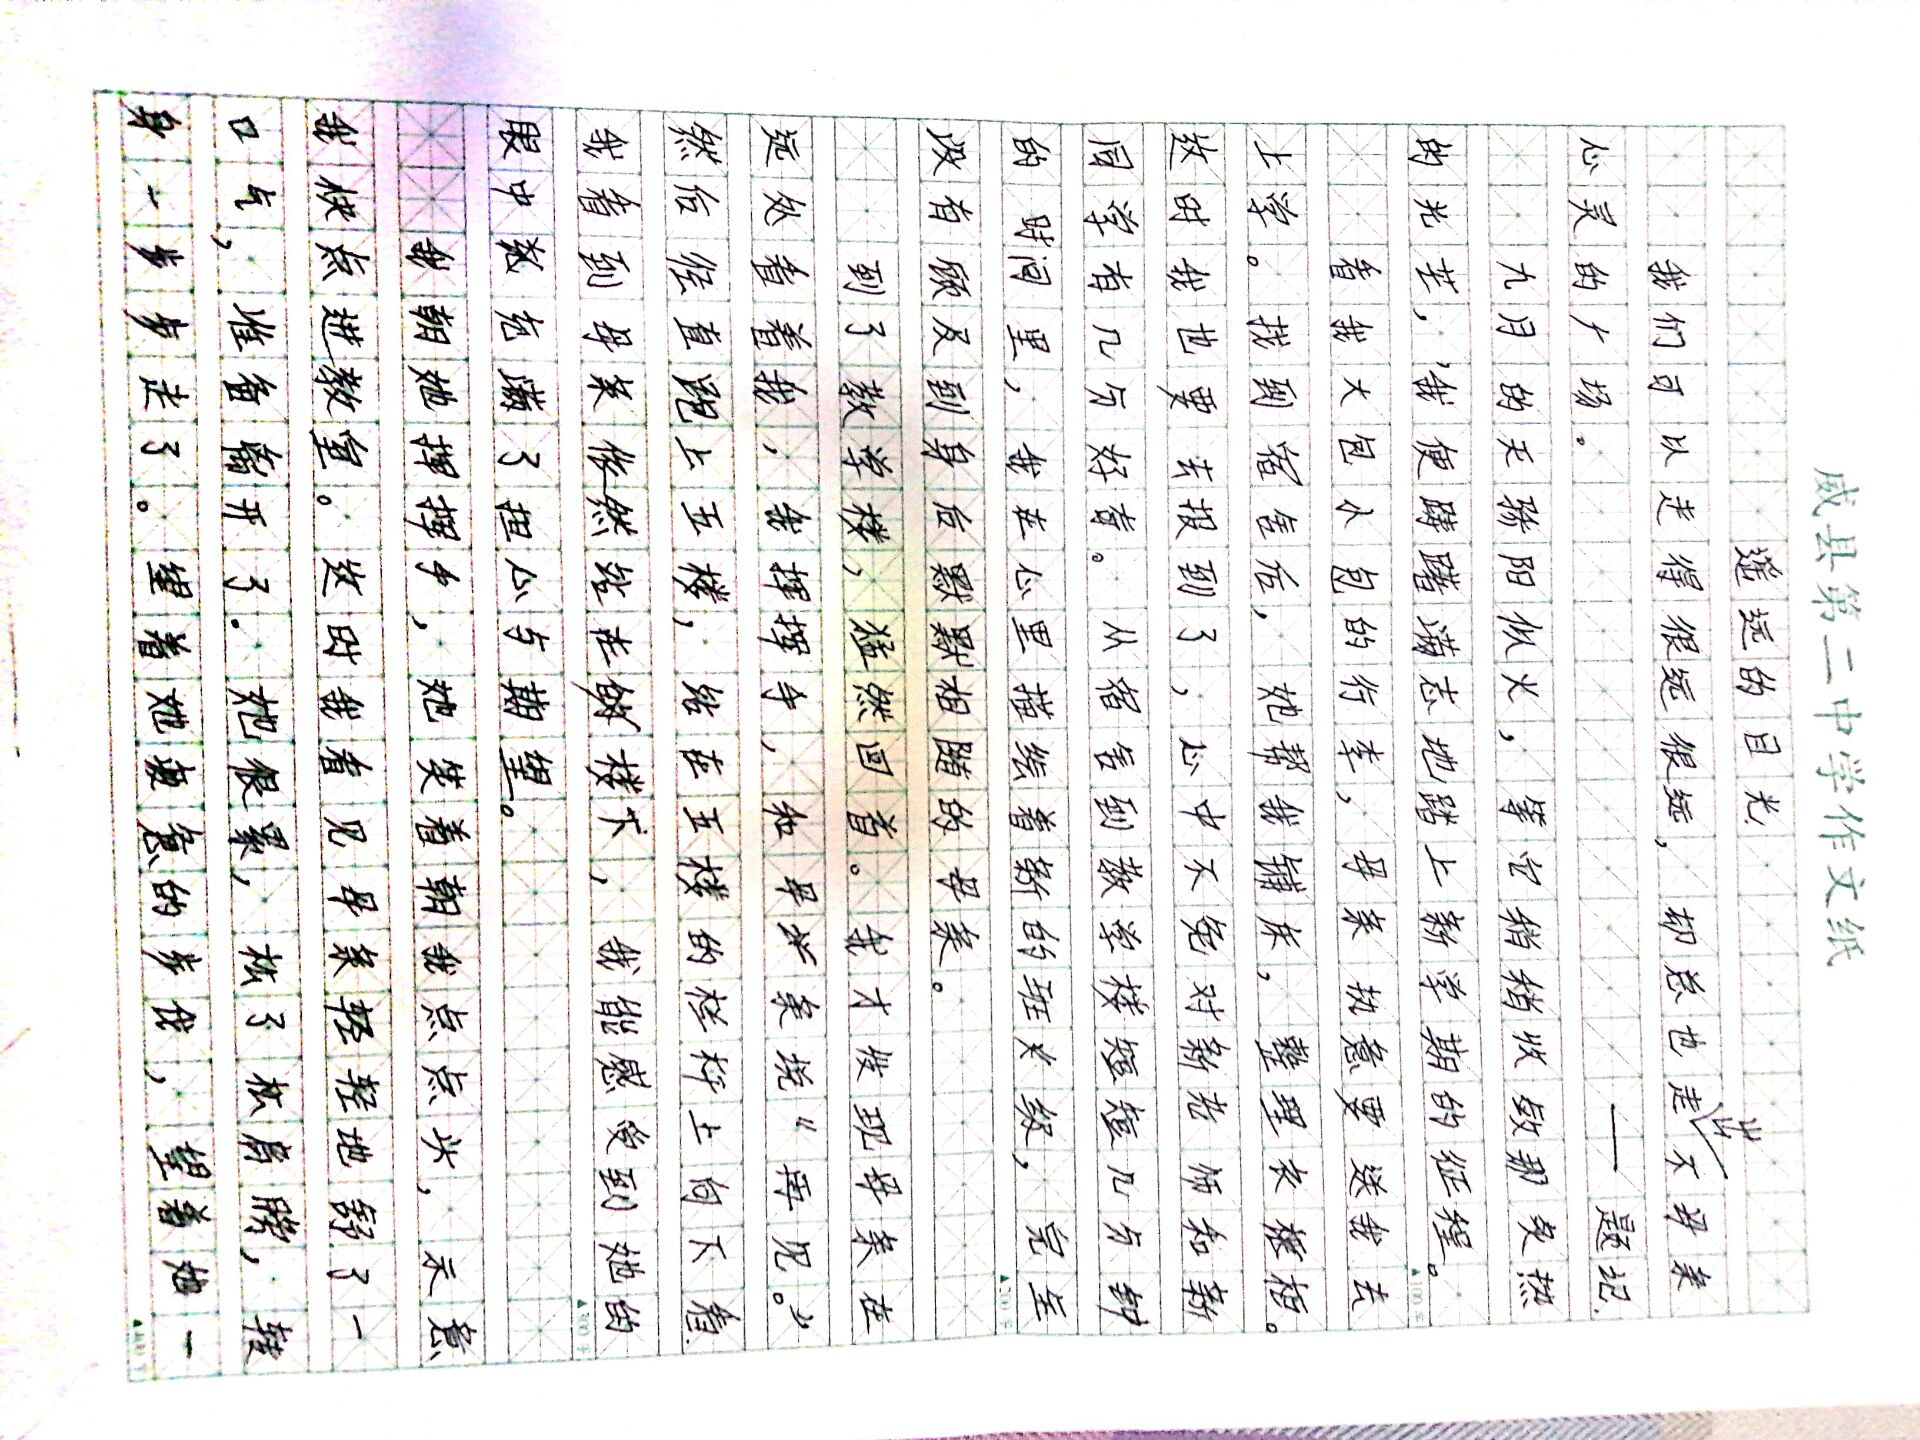 威县第二中学作文纸
遥远的目光
我们可以走得很远很远，却总也走不出母亲
心灵的广场。
——题记
九月的天骄阳似火，等它稍稍收敛那炙热
的光芒，我便踌躇满志地踏上新学期的征程。
看我大包小包的行李，母亲执意要送我去
上学。找到宿舍后，她帮我铺床，整理衣柜。
这时我也要去报到了，心中不免对新老师和新
同学有几分好奇。从宿舍到教学楼短短几分钟
的时间里，我在心里描绘着新的班级，完全
没有顾及到身后默默相随的母亲。
到了教学楼，猛然回首。我才发现母亲在
远处看着我，我挥挥手，和母亲说“再见。”
然后径直跑上五楼，站在五楼的栏杆上向下看
我看到母亲依然站在楼下，我能感受到她的
眼中
我朝她挥挥手，她笑着朝我点点头，示意
我快点进教室。这时我看见母亲轻轻地舒了一
口气，准备离开了。她很累，松了松肩膀，转
身一步步走了。望着她疲惫的步伐，望着她一
▲100字
▲200字
▲300字